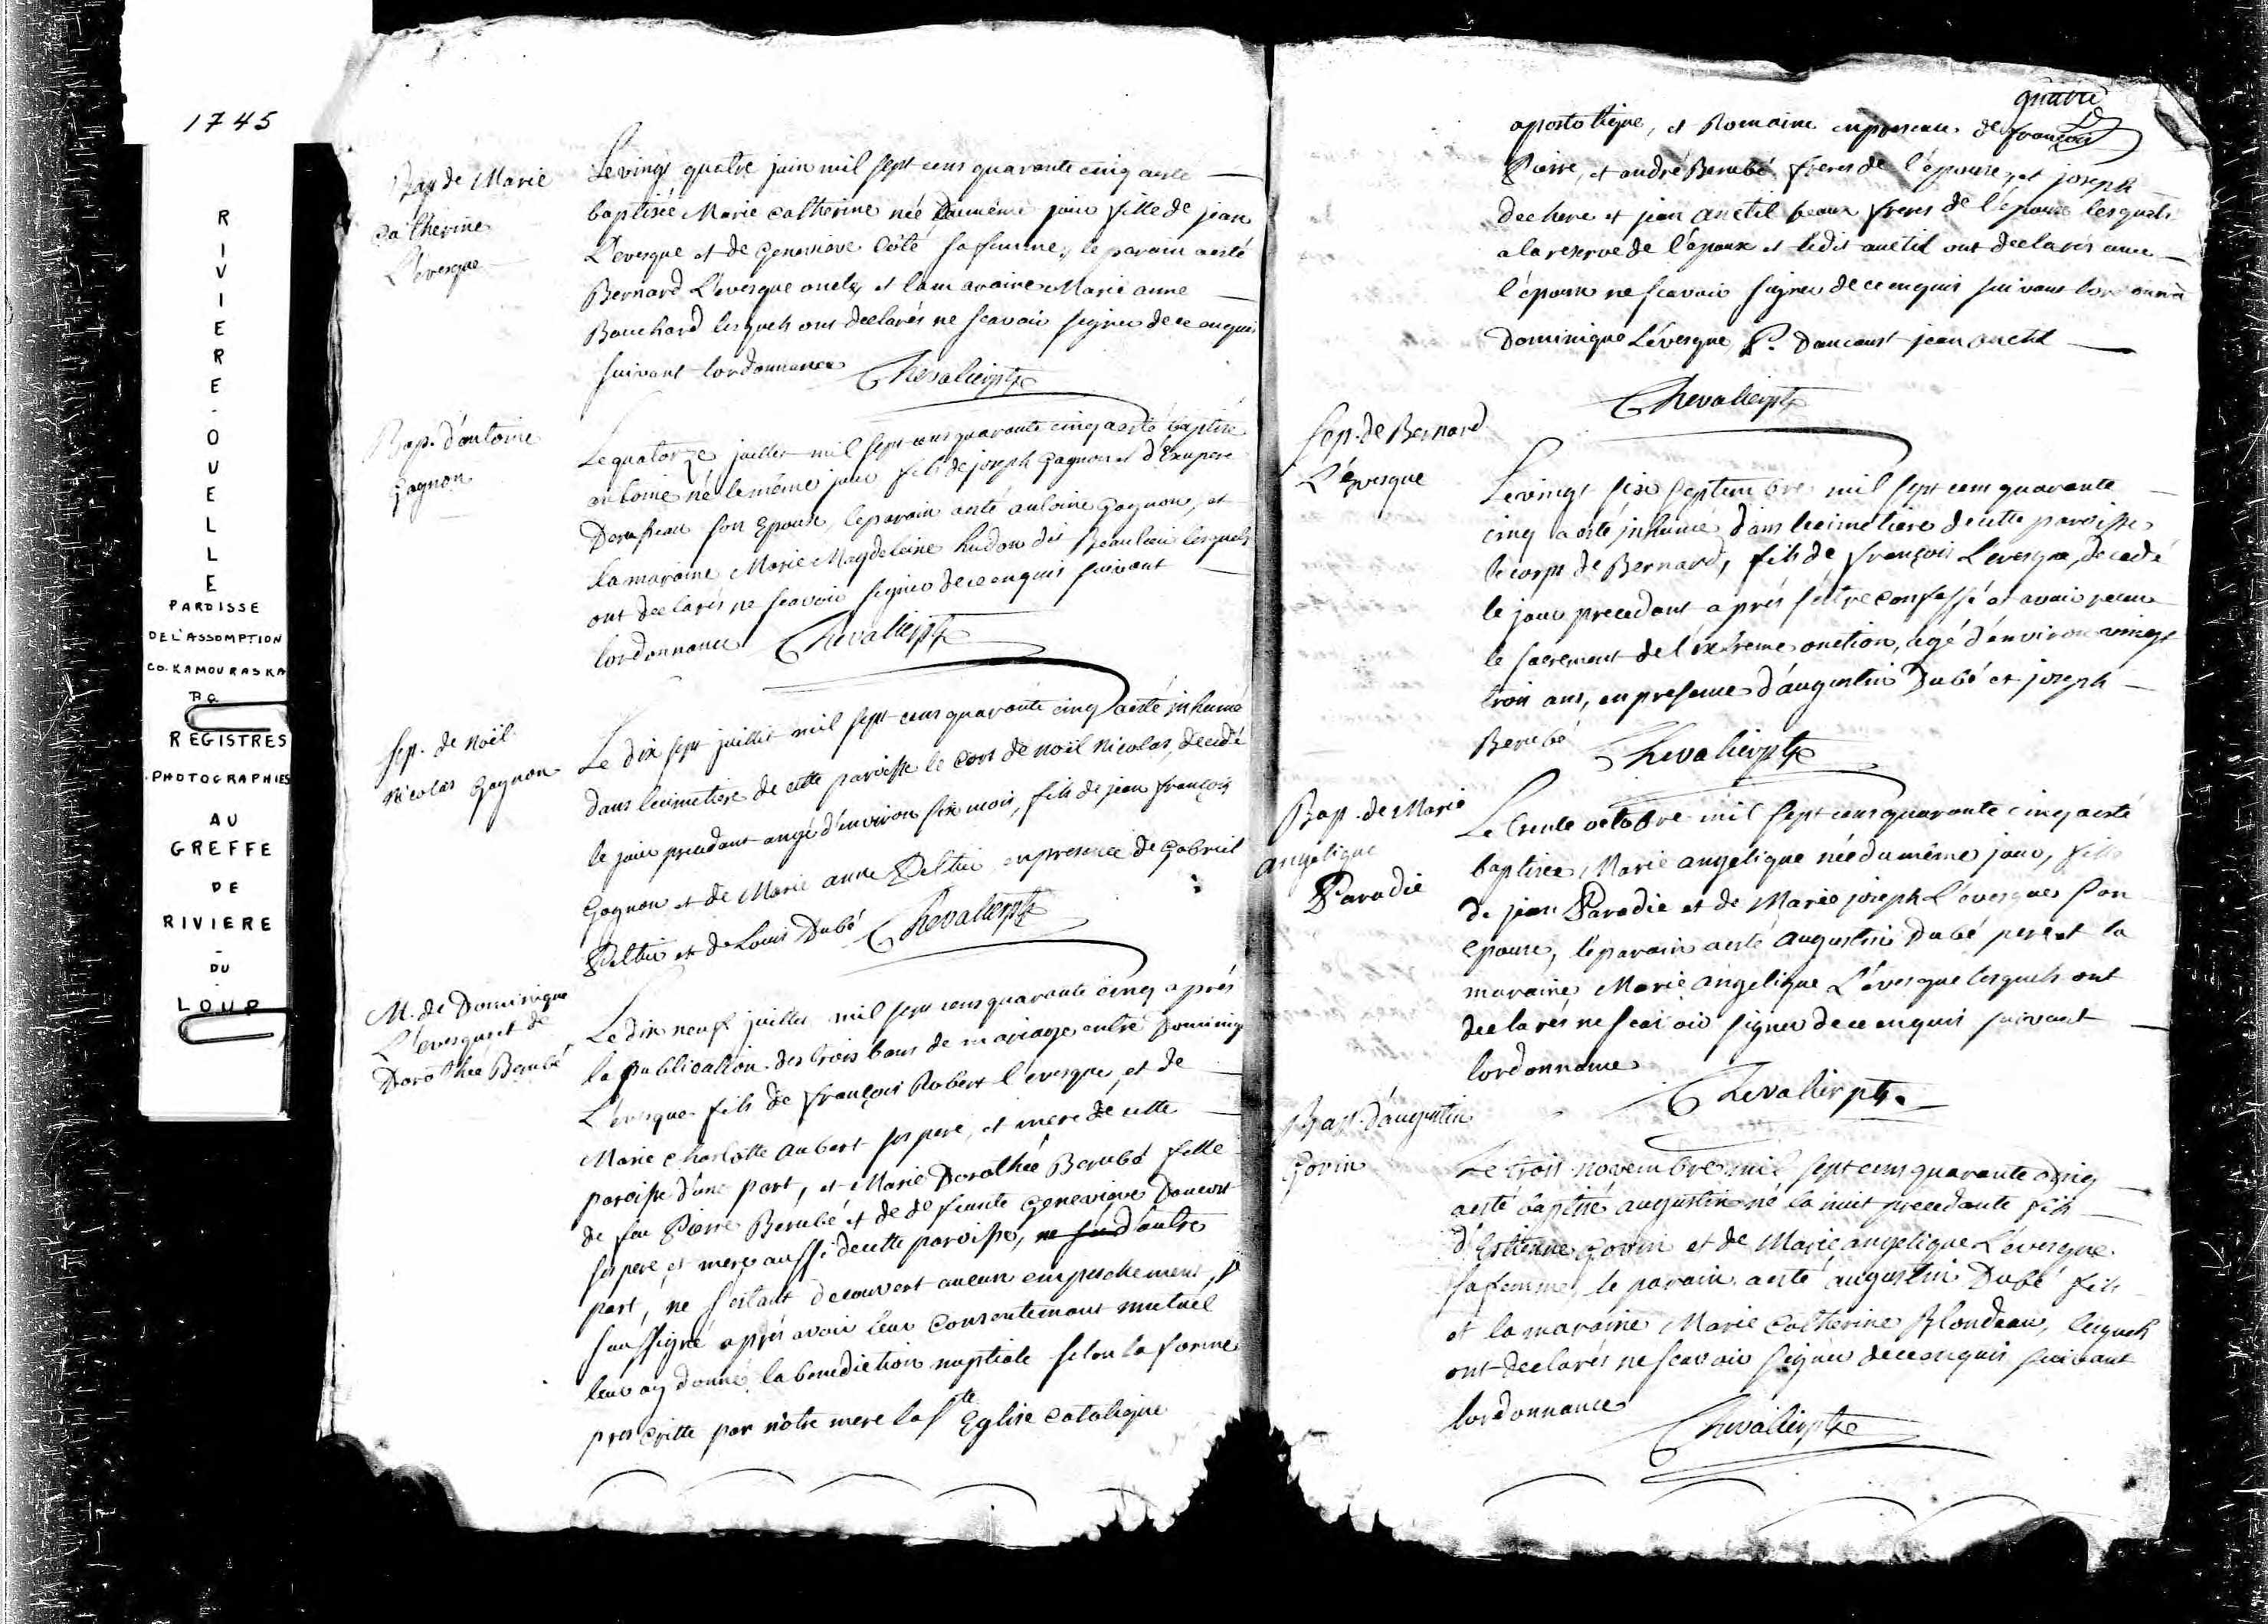 1745
RIVIERE-OUELLE
PAROISSE
DE L'ASSOMPTION
CO. KAMOURASKA
P.Q.
REGISTRES
PHOTOGRAPHIES
AU
GREFFE
DE
RIVIERE
-
DU
-
LOUP
Bap de Marie
Catherine
L'évesque
Le vingt quatre juin mil sept cens quarante cinq a esté
baptisée Marie Catherine née du même jour fille de jean
L'évesque et de Genevieve Côté sa femme, le parain a esté
Bernard L'évesque oncle et la maraine Marie anne
Bouchard lesquels ont declarés ne scavoir signer de ce enquis
suivant l'ordonnance Chevalier ptre
Bap. d'antoine
Gagnon
Le quatorze juillet mil sept cens quarante cinq a esté baptisé
antoine né le même jour fils de joseph Gagnon et d'Exupere
son Epouse, le parain a esté antoine Gagnon, et
la maraine Marie Magdeleine hudon dit Beaulieu lesquels
ont declarés ne scavoir signer de ce enquis suivant
lordonnance Chevalier ptre
Sep. de Noël
Nicolas Gagnon
Le dix sept juillet mil sept cens quarante cinq a esté inhumé
dans le cimetiere de cette paroisse le cors de noël nicolas, decedé
le jour precedant angé d'environ six mois, fils de jean françois
Gagnon et de Marie anne Peltier en presence de Gabriel
Peltier et de Louis Dubé Chevalier ptre
M. de Dominique
L'évesque et de
Dorothée Berubé
Le dix neuf juillet mil sept cens quarante cinq après
la publication des trois bans de mariage entre Dominiq
L'évesque fils de françois Robert l'évesque, et de
Marie Charlotte aubert ses pere, et mere de cette
paroisse d'une part, et Marie Dorothée Berubé fille
de feu Pierre Berubé et de defeunte Genevieve Dancost
ses pere et mere aussi de cette paroisse, d'autre
part, ne s'estant decouvert aucun empeschement, je
soussigné après avoir leur consentement mutuel
leur ay donné la benediction nuptiale selon la forme
prescritte par nôtre mere la Ste Eglise catolique
quatre
apostolique, et Romaine en presence de françois
Pierre, et andré Berubé freres de l'épouse, et joseph
dechene et jean anctil beaux freres de l'épouse lesquels
a la reserve de l'époux et ledit anctil ont declarés avec
l'épouse ne scavoir signer de ce enquis suivant
Dominique L'évesque P. Dancaust jean anctil
Chevalier ptre
Sep. de Bernard
L'évesque
Le vingt six septembre mil sept cens quarante
cinq a esté inhumé dans le cimetiere de cette paroisse
le corps de Bernard, fils de françois L'évesque, decedé
le jour precedant après s'être confessé et avoir receu
le sacrement de l'extreme onction, agé d'environ vingt
trois ans, en presence d'augustin Dubé et joseph
Berubé Chevalier ptre
Bap. de Marie
angelique
Paradie
Le trente octobre mil sept cens quarante cinq a esté
baptisée Marie angelique née du même jour, fille
de jean Paradie et de Marie joseph L'évesque son
epouse, le parain a esté augustin Dubé pere et la
maraine Marie angelique L'évesque lesquels ont
declarés ne scavoir signer de ce enquis suivant
lordonnance
Chevalier ptr.
Bap. d'augustin
Govin
Le trois novembre mil sept cens quarante cinq
a esté baptisé augustin né la nuit precedante fils
d'Estienne Govin et de Marie angelique L'évesque
sa femme, le parain a esté augustin Dubé fils
et la maraine Marie Catherine Blondeau, lesquels
ont declarés ne scavoir signer de ce enquis suivant
lordonnance
Chevalier ptre